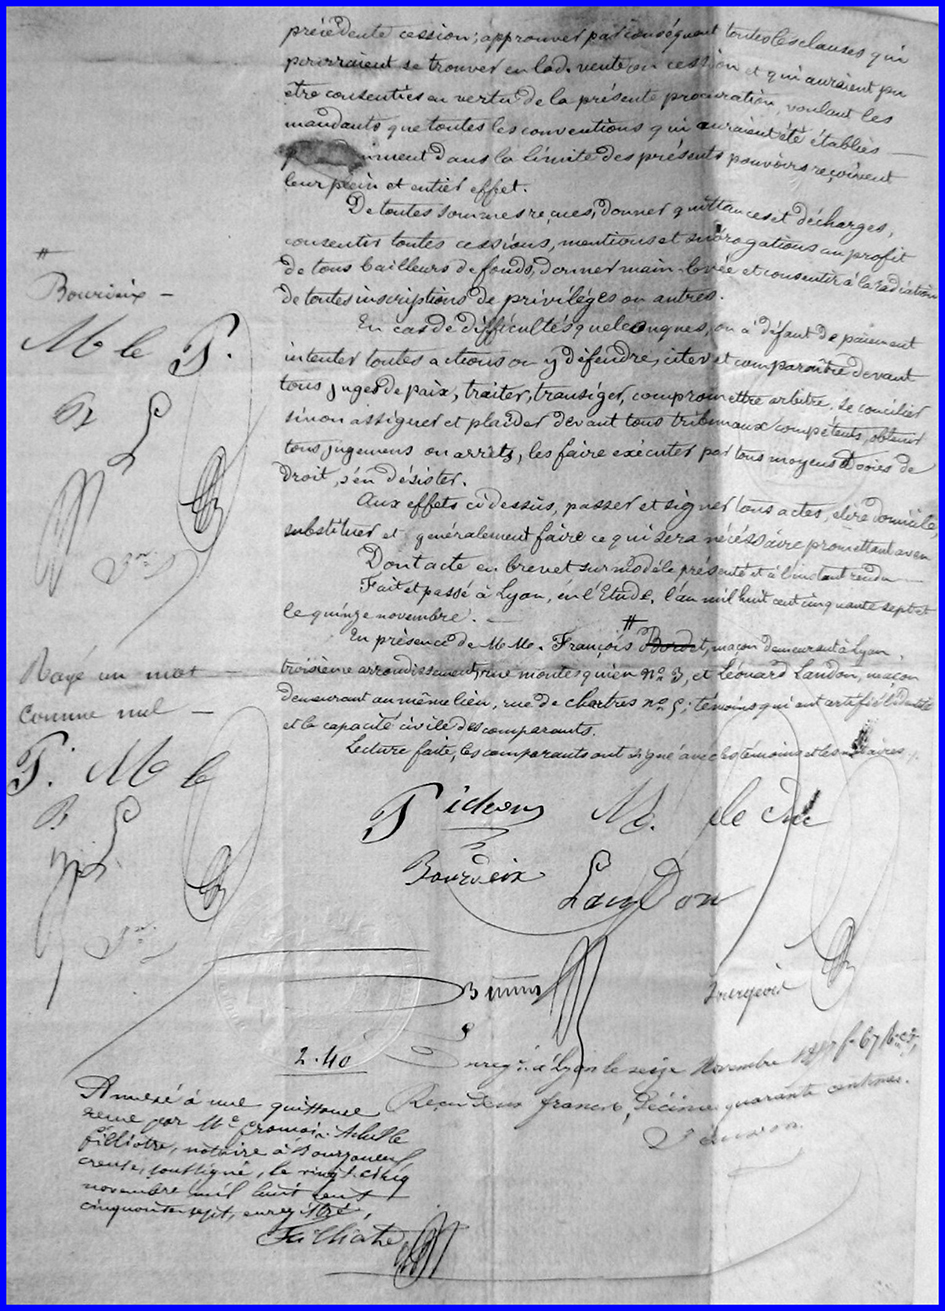 précédente cession; approuver par conséquent toutes les clauses qui
pourraient se trouver en lad. vente ou cession et qui auraient pu
être consenties en vertu de la présente procuration, voulant les
mandants que toutes les conventions qui auraient été établies —
dans la limite des présents pouvoirs reçoivent
leur plein et entier effet.
De toutes sommes reçues, donner quittances et décharges,
consentir toutes cessions, mentions et subrogations au profit
de tous bailleurs de fonds, donner main-levée et consentir à la radiation
de toutes inscriptions de privilèges ou autres.
En cas de difficultés quelconques, ou à défaut de paiement
intenter toutes actions ou y défendre, citer et comparaître devant
tous juges de paix, traiter, transiger, compromettre arbitre, se concilier
sinon assigner et plaider devant tous tribunaux compétents, obtenir
tous jugemens ou arrêts, les faire exécuter par tous moyens et voies de
droit, s'en désister.
Aux effets ci dessus, passer et signer tous actes, élire domicile,
substituer et généralement faire ce qui sera nécéssaire promettant aveu
Dont acte en brevet sur modèle présenté et à l'instant rendu —
Fait et passé à Lyon, en l'Etude, l'an mil huit cent cinquante sept et
le quinze novembre. —
En présence de MMe. François # , maçon demeurant à Lyon,
troisième arrondissement, rue montesquieu no. 3, et Léonard Landon, maçon
demeurant au même lieu, rue de chartres no. 5; témoins qui ont attesté l'identité
et la capacité civile des comparants.
Lecture faite, les comparants ont signé avec les témoins et les notaires.
#
Bourdeix —
M le P.
B L
Rayé un mot —
comme nul —
P. M le
B L
Pichon M. le
Bourdeix Landon
2.40
Enregé. à Lyon le seize Novembre 1857 f. 67
Reçu deux francs, décime quarante centimes.
Annexé à une quittance
reçue par Me
Filliatre, notaire à Bourganeuf
creuse, soussigné, le vingt cinq
novembre mil huit cent
cinquante sept, enregistré,
Filliatre